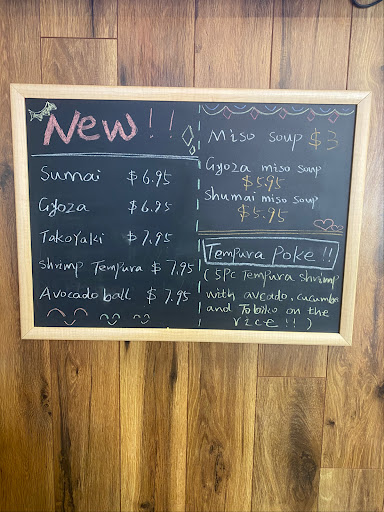 New!!
Sumai $6.95
Gyoza $6.95
Takoyaki $7.95
shrimp Tempura $7.95
Avocado ball $7.95
Miso soup $3
Gyoza miso soup
$5.95
Shumai miso soup
$5.95
Tempura Poke!!
(5pc Tempura shrimp
with avcado, cucumbe
and Tobiko on the
rice!!)